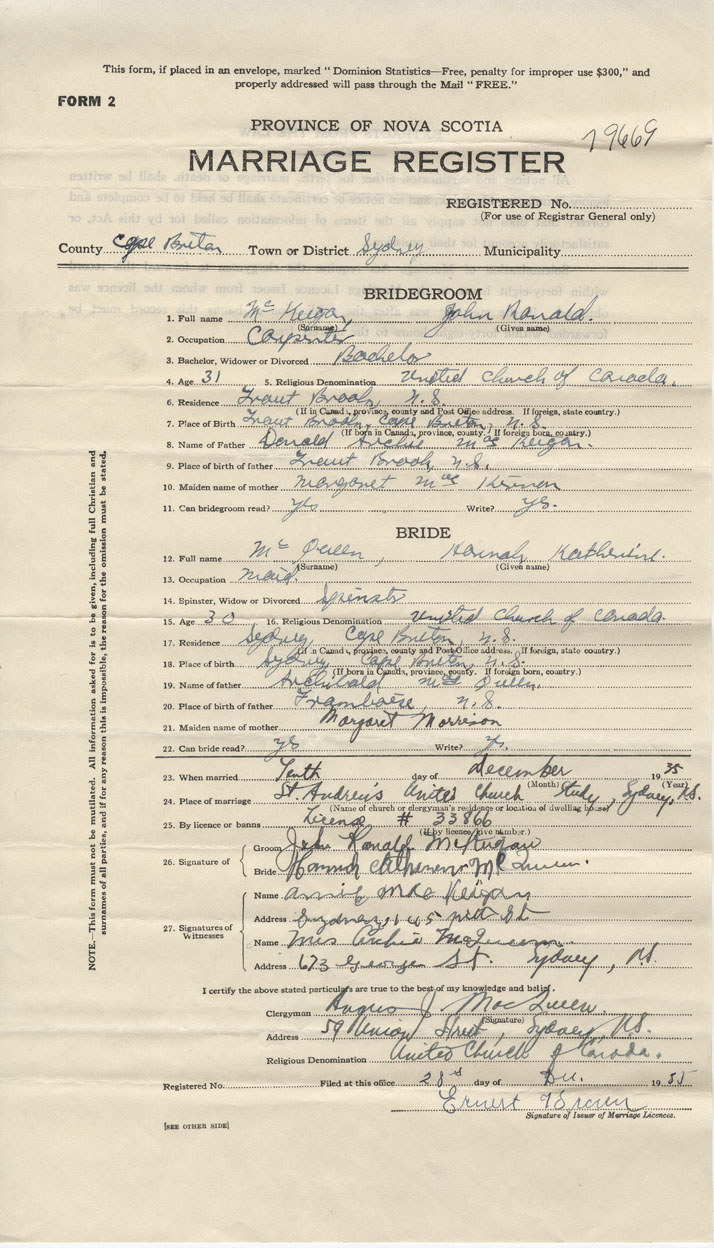 This form, if placed in an envelope, marked "Dominion Statistics—Free, penalty for improper use $300," and
properly addressed will pass through the Mail "FREE."
FORM 2
PROVINCE OF NOVA SCOTIA
19669
MARRIAGE REGISTER
REGISTERED No.
(For use of Registrar General only)
County Cape Breton Town or District Sydney Municipality
BRIDEGROOM
1. Full name McKeigan, John Ranald.
(Surname) (Given name)
2. Occupation Carpenter
3. Bachelor, Widower or Divorced Bachelor
4. Age 31 5. Religious Denomination United Church of Canada.
6. Residence Trout Brook, N.S.
(If in Canada, province, county and Post Office address. If foreign, state country.)
7. Place of Birth Trout Brook, Cape Breton, N.S.
(If born in Canada, province, county. If foreign born, country.)
8. Name of Father Donald Archie MacKeigan.
9. Place of birth of father Trout Brook, N.S.
10. Maiden name of mother Margaret Mac
11. Can bridegroom read? yes Write? yes.
BRIDE
12. Full name McQueen, Hannah Katherine.
(Surname) (Given name)
13. Occupation Maid.
14. Spinster, Widow or Divorced Spinster
15. Age 30 16. Religious Denomination United Church of Canada.
17. Residence Sydney Cape Breton, N.S.
(If in Canada, province, county and Post Office address. If foreign, state country.)
18. Place of birth Sydney Cape Breton, N.S.
(If born in Canada, province, county. If foreign born, country.)
19. Name of father Archibald McQueen.
20. Place of birth of father Framboise, N.S.
21. Maiden name of mother Margaret Morrison
22. Can bride read? yes Write? yes.
23. When married Tenth day of December 1935
(Month) (Year)
24. Place of marriage St. Andrew's United Church Study, Sydney, N.S.
(Name of church or clergyman's residence or location of dwelling house)
25. By licence or banns License # 33866
(If by licence give number.)
26. Signature of
Groom John Ranald McKeigan
Bride Hannah Catherine McQueen.
27. Signatures of Witnesses
Name Annie MacKeigan
Address Sydney, 145 St
Name Mrs Archie McQueen
Address 673 George St. Sydney, N.S.
I certify the above stated particulars are true to the best of my knowledge and belief.
Clergyman Angus J MacQueen.
(Signature)
Address 59 Union Street, Sydney, N.S.
Religious Denomination United Church of Canada.
Registered No. Filed at this office 28 day of Dec. 1935
Ernest Brown
Signature of Issuer of Marriage Licences.
[SEE OTHER SIDE]
NOTE.—This form must not be mutilated. All information asked for is to be given, including full Christian and
surnames of all parties, and if for any reason this is impossible, the reason for the omission must be stated.